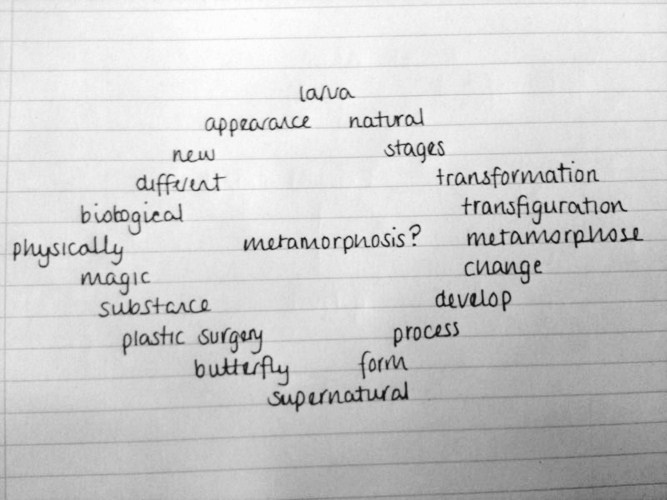 larva
appearance natural
new stages
different transformation
biological transfiguration
physically metamorphosis? metamorphose
magic change
substance develop
plastic surgery process
butterfly form
supernatural